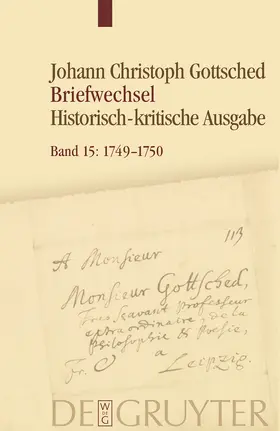 Johann Christoph Gottsched
Briefwechsel
Historisch-kritische Ausgabe
Band 15: 1749–1750
113
A Monsieur
Monsieur Gottsched,
Tres sçavant professeur
extraordinaire, de la
philosophie & Poesie,
Fr. a
Leipzig.
W
DE
G
DE GRUYTER